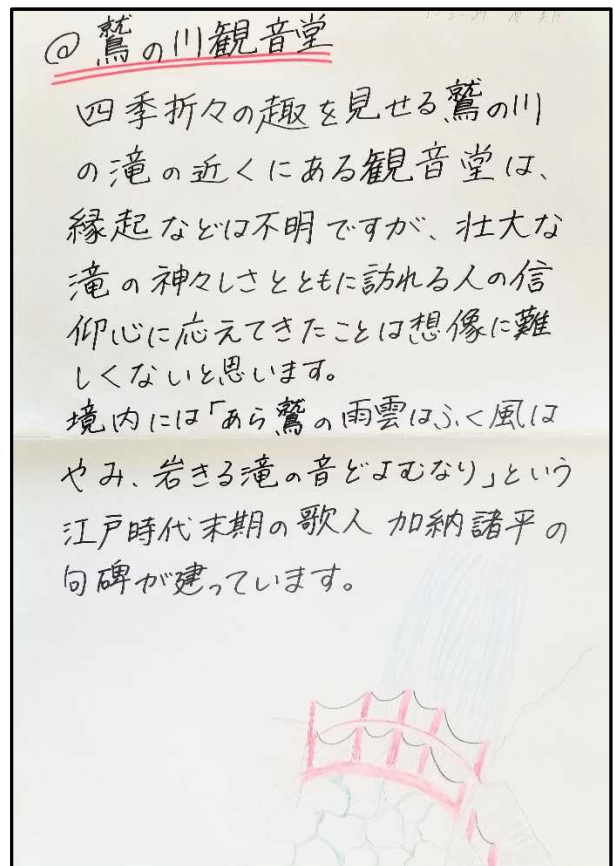 @鷲の川観音堂
四季折々の趣を見せる鷲の川
の滝の近くにある観音堂は、
縁起などは不明ですが、壮大な
滝の神々しさとともに訪れる人の信
仰心に応えてきたことは想像に難
しくないと思います。
境内には「あら鷲の雨雲はふく風は
やみ、岩きる滝の音どよむなり」という
江戸時代末期の歌人 加納諸平の
句碑が建っています。